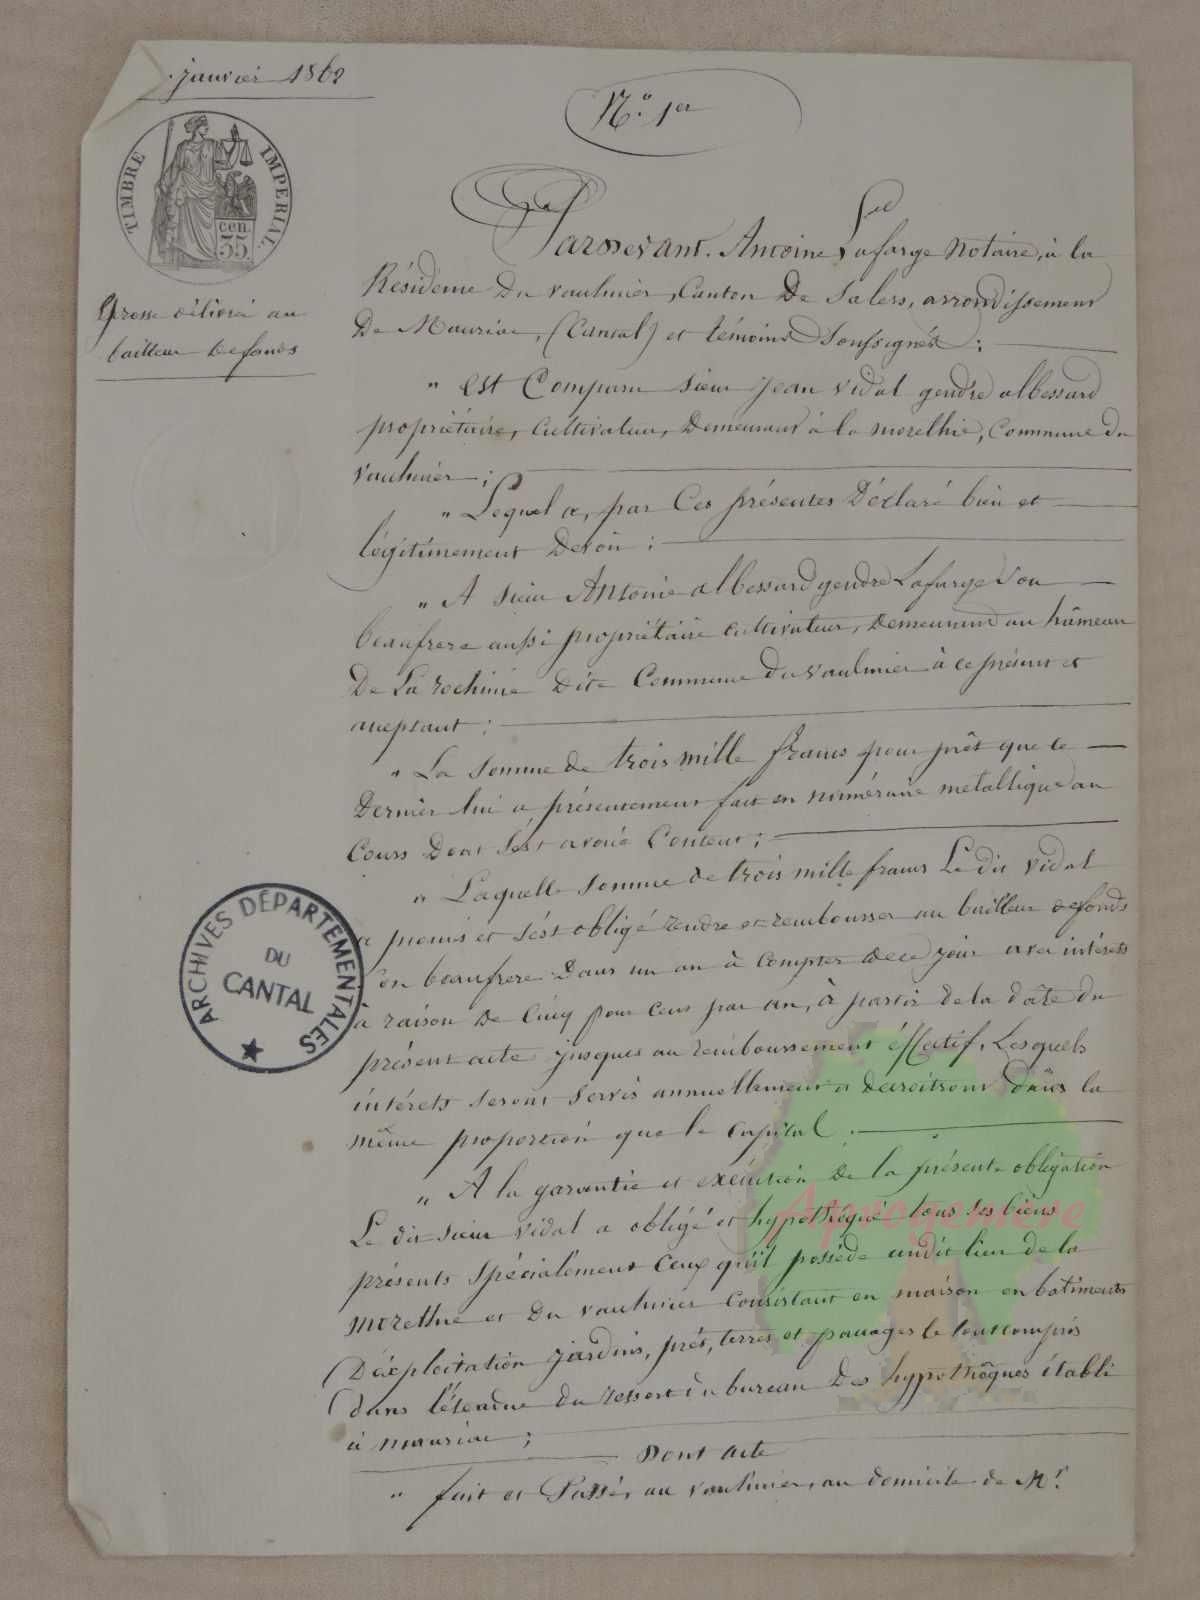 janvier 1862
N.º 1er
TIMBRE IMPERIAL.
cen.
35
Grosse délivrée au
bailleur defonds
Pardevant. Antoine Lafarge Notaire, à la
Résidence Du vaulmier, Canton De Salers, arrondissement
De Mauriac, (Cantal) et témoins Soussignés :
" est Comparu sieur jean vidal gendre albessard
propriétaire, Cultivateur, Demeurant à la morethie, Commune du
vaulmier ;
" Lequel a, par Ces présentes Déclaré bien et
légitimement Devoir :
" A sieur Antoine albessard gendre Lafarge Son
beaufrere aussi propriétaire cultivateur, Demeurant au hâmeau
De La rochinie Dite Commune du vaulmier à ce présent et
acceptant :
" La Somme de trois mille francs pour prêt que ce
Dernier lui a présentement fait en numéraire metallique au
Cours Dont s'ést avoué Content ;
" Laquelle Somme de trois mille francs Le dit vidal
a promis et s'ést obligé rendre et rembourser au bailleur defonds
son beaufrere Dans un an à compter dece jour avec intérets
à raison De Cinq pour Cent par an, à partir de la date du
présent acte jusques au remboursement éffectif, Lesquels
intérets seront Servis annuellement et decroitront dans la
même proportion que le capital.
" A la garantie et exécution de la présente obligation
Le dit sieur vidal a obligé et hypothéqué tous ses biens
présents spécialement Ceux qu'il posséde audit lieu de la
morethie et Du vaulmier Consistant en maison en batiments
D'éxploitation jardins, prés, terres et pacages le tout compris
dans l'étendue du ressort du bureau Des hypothêques établi
à mauriac ;
Dont acte
" fait et Passé, au vaulmier, au domicile de Mr.
ARCHIVES DÉPARTEMENTALES
DU
CANTAL
Aprogemere